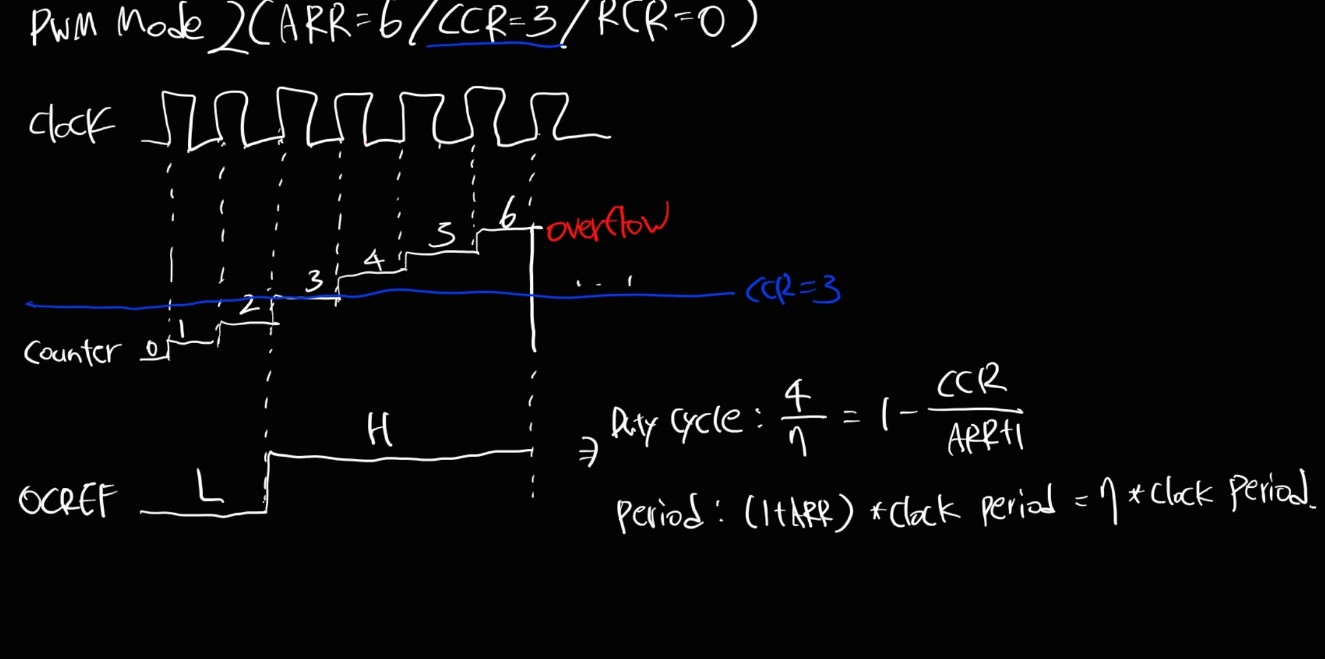 PWM Mode 2 (ARR=6/CCR=3/RCR=0)
Clock
6 overflow
5
4
3
...
CCR=3
2
1
Counter 0
H
⇒ Duty Cycle: 4/7 = 1 - CCR/ARR+1
OCREF L
Period: (1+ARR) * Clock period = 7 * Clock Period.